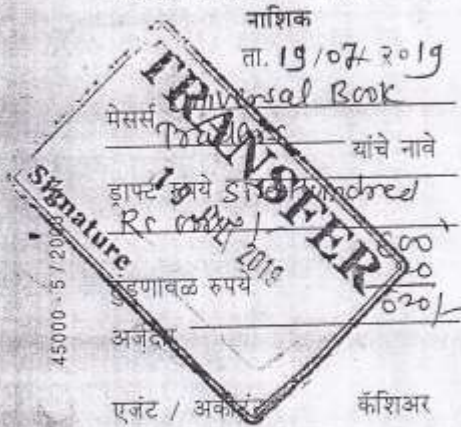 नाशिक
ता. 19/07/2019
मेसर्स Universal Book
Traders यांचे नावे
ड्राफ्ट रुपये Six Hundred
Rs
600
हुंडणावळ रुपये 20
620/-
अर्जदार
एजंट / अकौंटंट कॅशिअर
TRANSFER
19 2019
Signature
45000 - 5 / 20